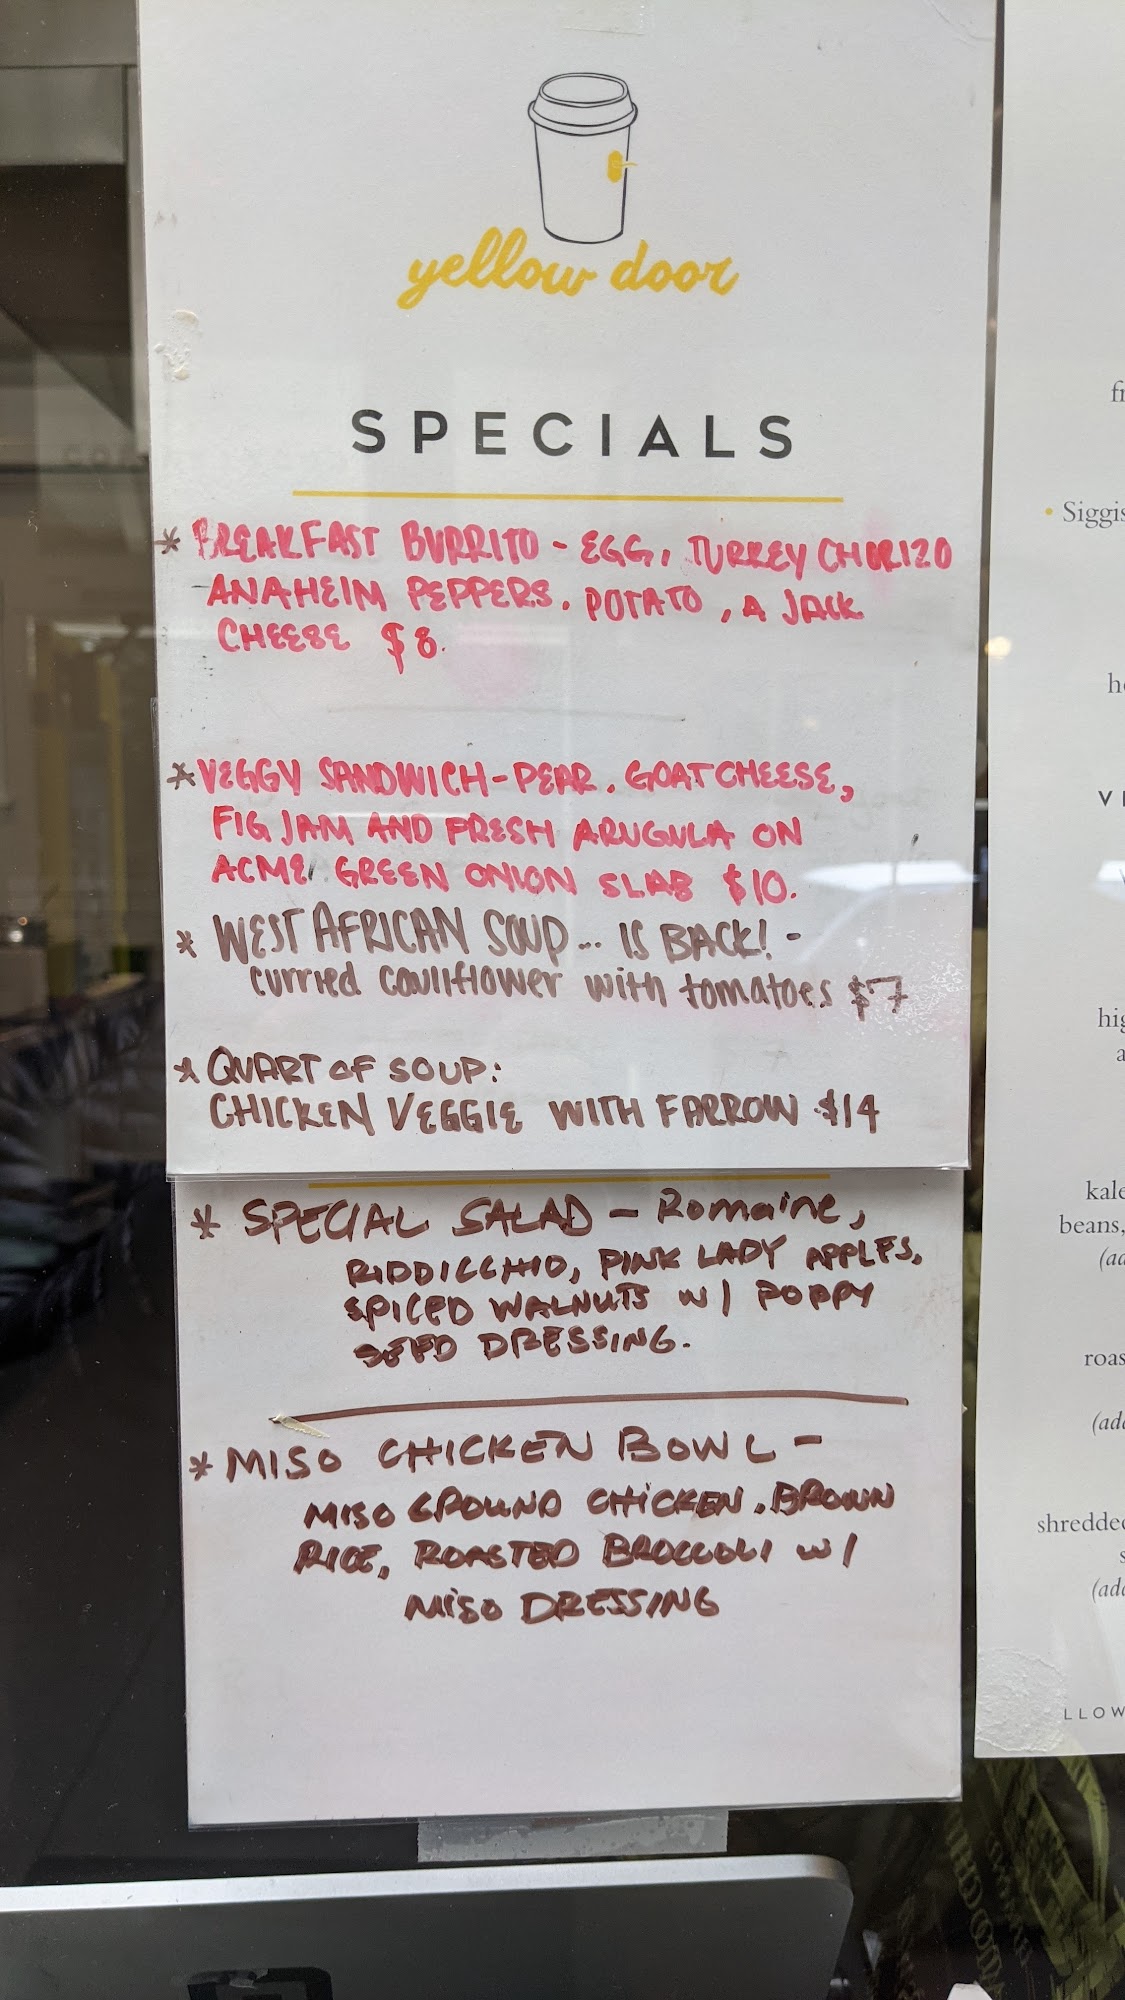 yellow door
SPECIALS
* BREAKFAST BURRITO - EGG, TURKEY CHORIZO
ANAHEIM PEPPERS, POTATO, A JACK
CHEESE $8.
* VEGGY SANDWICH - PEAR, GOAT CHEESE,
FIG JAM AND FRESH ARUGULA ON
ACME GREEN ONION SLAB $10.
* WEST AFRICAN SOUP... IS BACK! -
curried cauliflower with tomatoes $7
* QUART OF SOUP:
CHICKEN VEGGIE WITH FARROW $14
* SPECIAL SALAD - Romaine,
RIDDICCHIO, PINK LADY APPLES,
SPICED WALNUTS W/ POPPY
SEED DRESSING.
* MISO CHICKEN BOWL -
MISO GROUND CHICKEN, BROWN
RICE, ROASTED BROCCOLI W/
MISO DRESSING
fr
• Siggis
ho
hig
a
kale
beans,
(ad
roas
(add
shredded
s
(add
LLOW